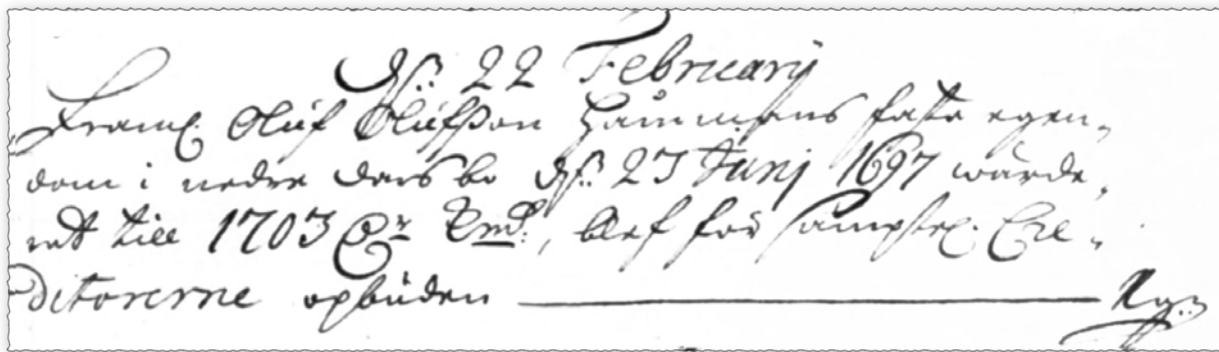 D. 22 February
Framl. Oluf Olufsson Hammans fasta egen-
dom i nedre dansbo d. 23 Junj 1697 wärde-
rat till 1703 D:r Kmt:, blef för samptel. Cre-
ditorerne opbuden